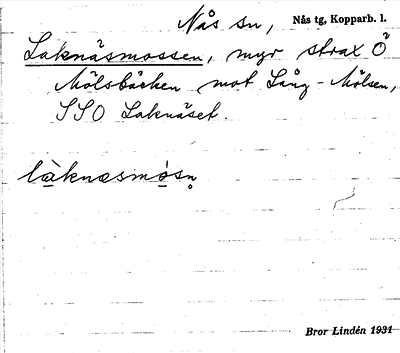 Nås sn, Nås tg, Kopparb. l.
Laknäsmossen, myr strax Ö
Mölsbäcken mot Lång-Mölsen,
SSO Laknäset.
làknæsmòsn̥
Bror Lindén 1931